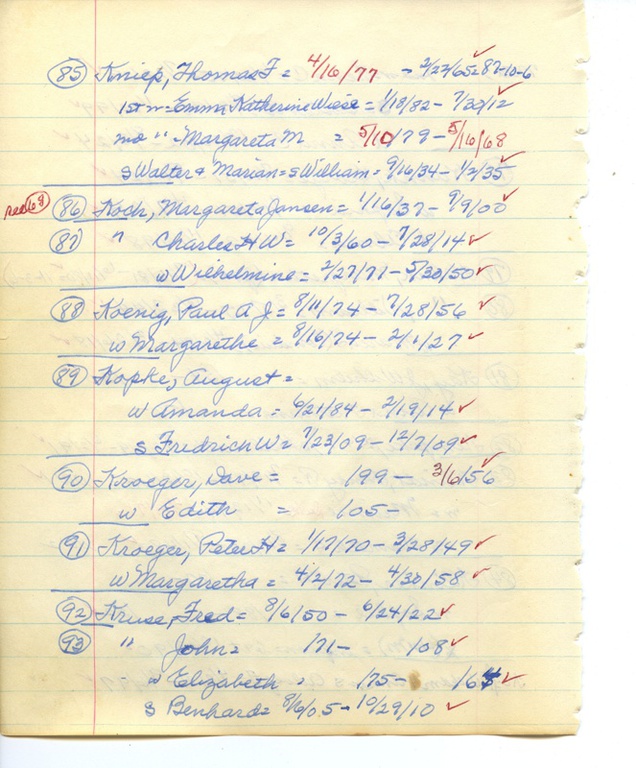 85 Kniep, Thomas F = 4/16/77 - 2/22/65=87-10-6 ✓
1st w=Emma Katherine Wiese = 1/18/82 - 7/30/12 ✓
" - Margareta M = 5/10/79 - 5/16/68
s Walter & Marian = s William = 9/16/34 - 1/2/35 ✓
86 Koch, Margareta Jansen = 1/16/37 - 9/9/00 ✓
87 " Charles H W = 10/3/60 - 7/28/14 ✓
w Wilhelmine = 2/27/71 - 5/30/50 ✓
88 Koenig, Paul A J = 8/11/74 - 7/28/56 ✓
w Margarethe = 8/16/74 - 2/1/27 ✓
89 Kopke, August =
w Amanda = 6/21/84 - 2/19/14 ✓
s Fredrich W = 7/23/09 - 12/7/09 ✓
90 Kroeger, Dave = 199 - 3/6/56 ✓
w Edith = 105 -
91 Kroeger, Peter H = 1/17/70 - 3/28/49 ✓
w Margaretha = 4/2/72 - 4/30/58 ✓
92 Kruse, Fred = 8/6/50 - 6/24/22 ✓
93 " John = 171 - 108 ✓
w Elizabeth = 175 - ✓
s Benhard = 8/6/05 - 10/29/10 ✓